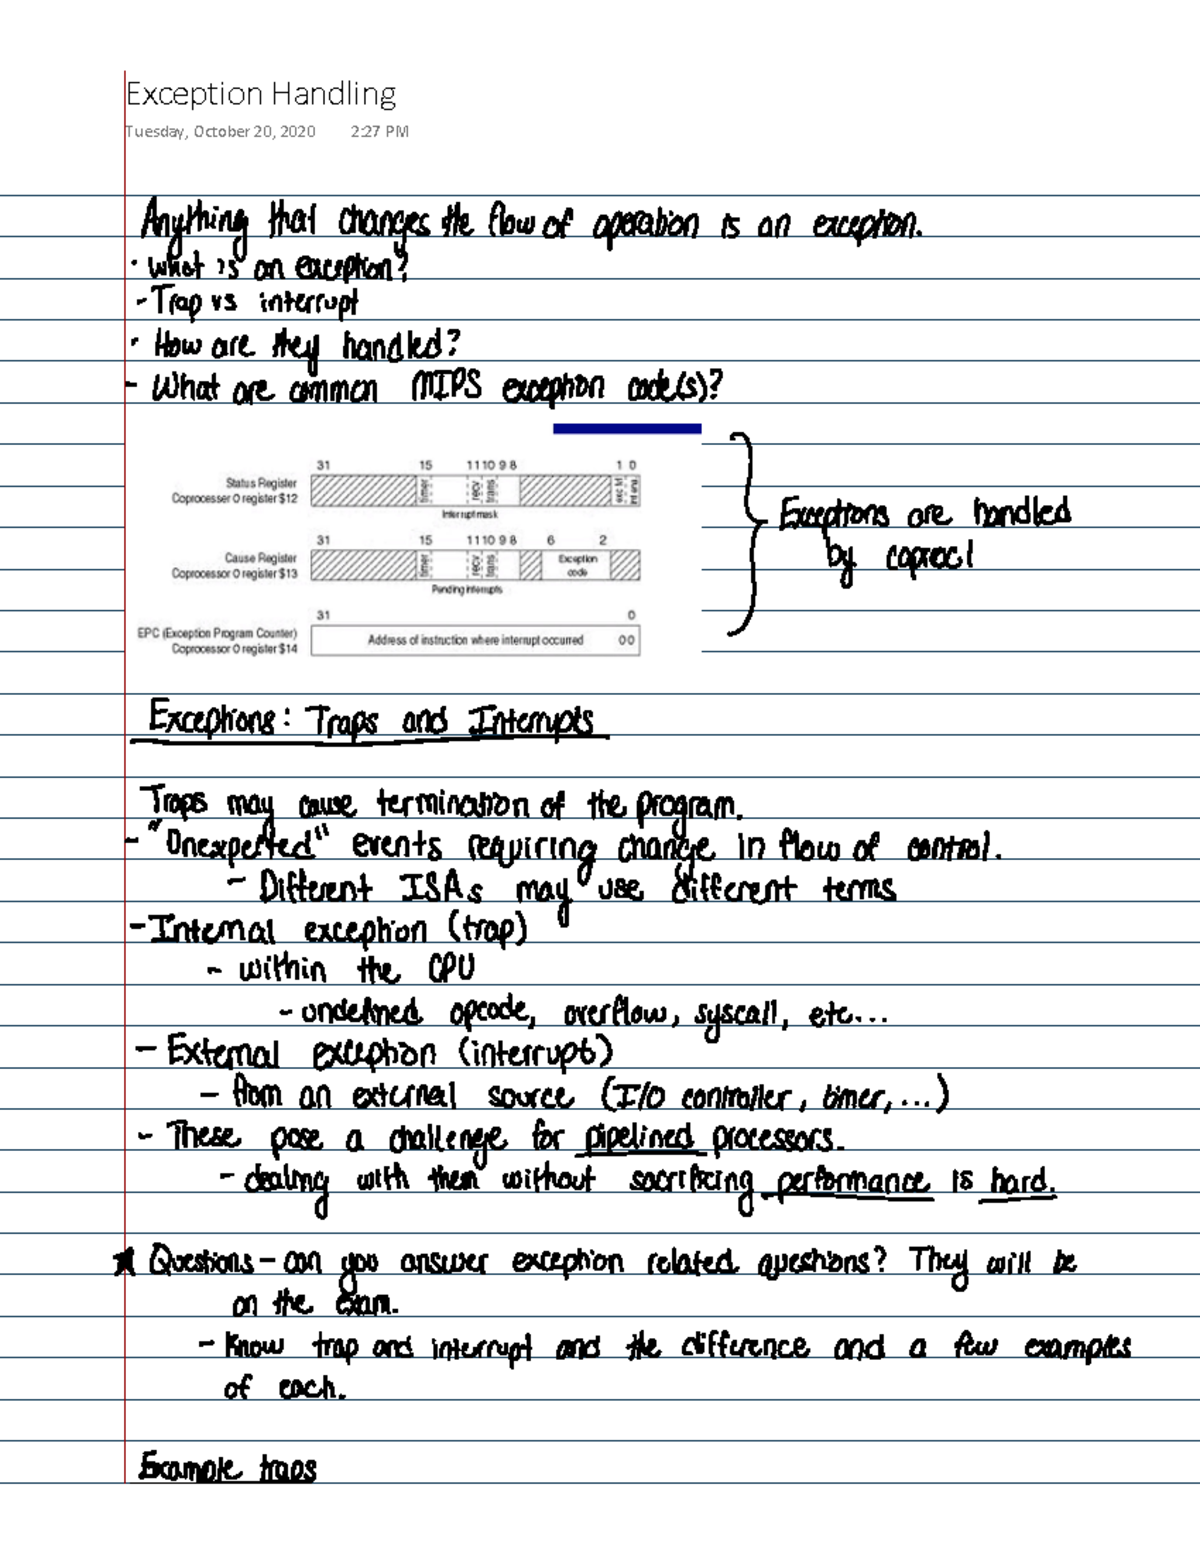 Exception Handling
Tuesday, October 20, 2020 2:27 PM
Anything that changes the flow of operation is an exception.
· What is an exception?
- Trap vs interrupt
· How are they handled?
- What are common MIPS exception code(s)?
31 15 11 10 9 8 1 0
Status Register
Coprocesser 0 register $12
timer recv trans exc lvl int ena
Interrupt mask
31 15 11 10 9 8 6 2
Cause Register
Coprocessor 0 register $13
timer recv trans Exception code
Pending interrupts
31 0
EPC (Exception Program Counter)
Coprocessor 0 register $14
Address of instruction where interrupt occurred 00
Exceptions are handled
by coproc1
Exceptions: Traps and Interrupts
Traps may cause termination of the program.
- "Unexpected" events requiring change in flow of control.
- Different ISAs may use different terms
- Internal exception (trap)
- within the CPU
- undefined opcode, overflow, syscall, etc...
- External exception (interrupt)
- from an external source (I/O controller, timer, ...)
- These pose a challenge for pipelined processors.
- dealing with them without sacrificing performance is hard.
★ Questions - can you answer exception related questions? They will be
on the exam.
- Know trap and interrupt and the difference and a few examples
of each.
Example traps